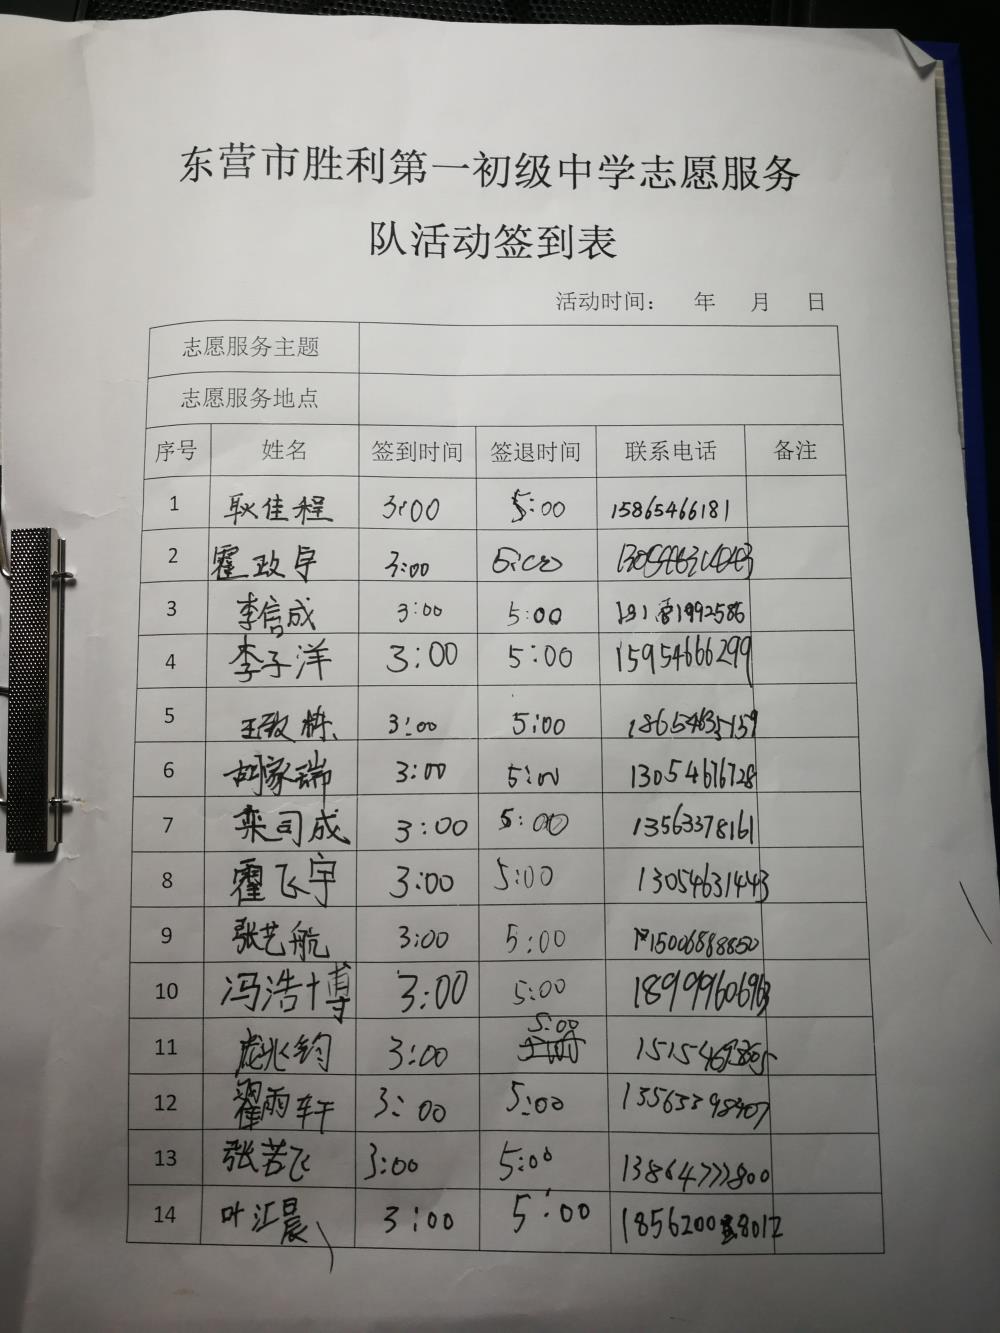 东营市胜利第一初级中学志愿服务
队活动签到表
活动时间： 年 月 日
志愿服务主题
志愿服务地点
序号 姓名 签到时间 签退时间 联系电话 备注
1 耿佳程 3:00 5:00 15865466181
2 霍政宇 3:00 5:00
3 李信成 3:00 5:00
4 李子洋 3:00 5:00 15954666299
5 王致栋 3:00 5:00 18654635159
6 胡家瑞 3:00 5:00 13054676728
7 栾司成 3:00 5:00 13563378161
8 霍飞宇 3:00 5:00 13054631443
9 张艺航 3:00 5:00 15006888850
10 冯浩博 3:00 5:00 18999960696
11 庞兆钧 3:00 5:00
12 翟雨轩 3:00 5:00 13563398407
13 张若飞 3:00 5:00 13864777800
14 叶汇晨 3:00 5:00 18562008012